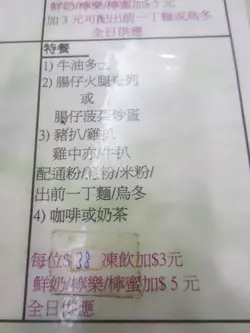 鮮奶/檸樂/檸蜜加$5元
加3元可配出前一丁麵或烏冬
全日供應
特餐
1) 牛油多士
2) 腸仔火腿
或
腸仔菠菜炒蛋
3) 豬扒/雞扒
雞中亦/牛扒
配通粉/粉/米粉/
出前一丁麵/烏冬
4) 咖啡或奶茶
每位$38 凍飲加$3元
鮮奶/檸樂/檸蜜加$5元
全日供應